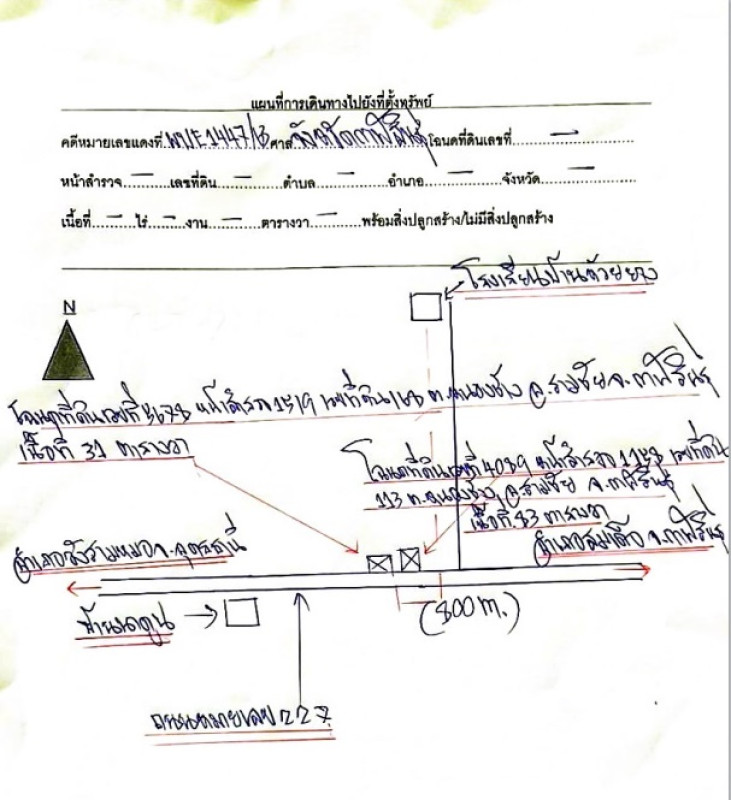 แผนที่การเดินทางไปยังที่ตั้งทรัพย์
คดีหมายเลขแดงที่ ผบE1447/3 ศาล จังหวัดกาฬสินธุ์ โฉนดที่ดินเลขที่ –
หน้าสำรวจ – เลขที่ดิน – ตำบล – อำเภอ – จังหวัด –
เนื้อที่ – ไร่ – งาน – ตารางวา – พร้อมสิ่งปลูกสร้าง/ไม่มีสิ่งปลูกสร้าง
โรงเรียนบ้านด้วยยาง
N
โฉนดที่ดินเลขที่ 3673 หน้าสำรวจ 1519 เลขที่ดิน 168 ต.หนองช้าง อ.สามชัย จ.กาฬสินธุ์
เนื้อที่ 31 ตารางวา
โฉนดที่ดินเลขที่ 4089 หน้าสำรวจ 1158 เลขที่ดิน
113 ต.หนองช้าง อ.สามชัย จ.กาฬสินธุ์
เนื้อที่ 83 ตารางวา
อำเภอวังสามหมอ จ.อุดรธานี
อำเภอสมเด็จ จ.กาฬสินธุ์
(800 m.)
ถนนหมายเลข 227